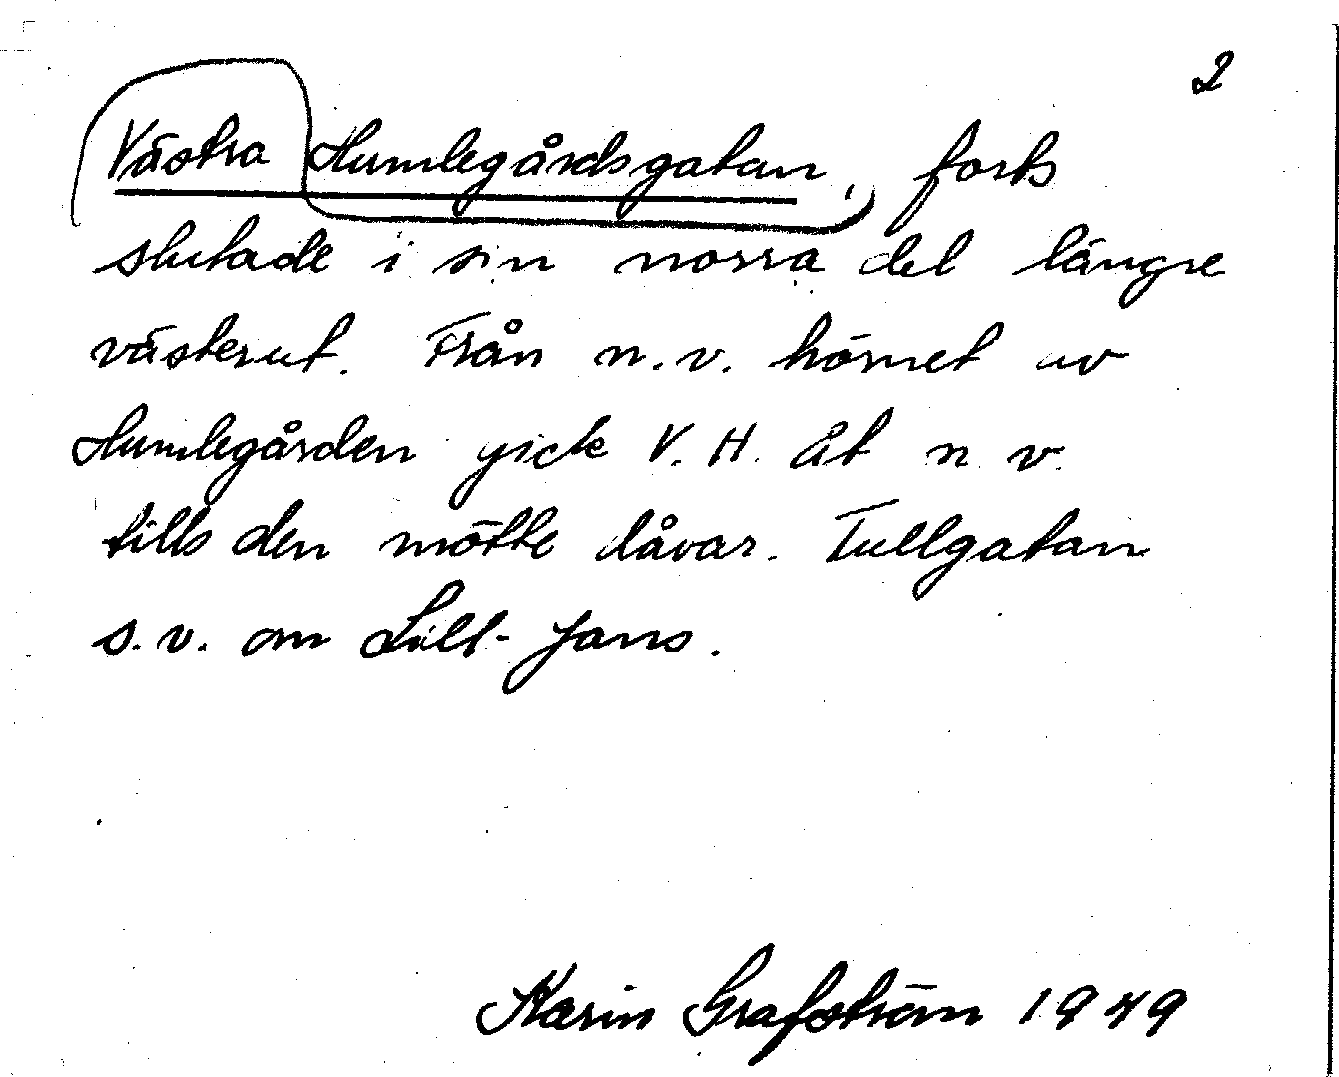 2
Västra Humlegårdsgatan, forts
slutade i sin norra del längre
västerut. Från n.v. hörnet av
Humlegården gick V. H. åt n v.
tills den mötte dåvar. Tullgatan
s.v. om Lill-Jans.
Karin Grafström 1949